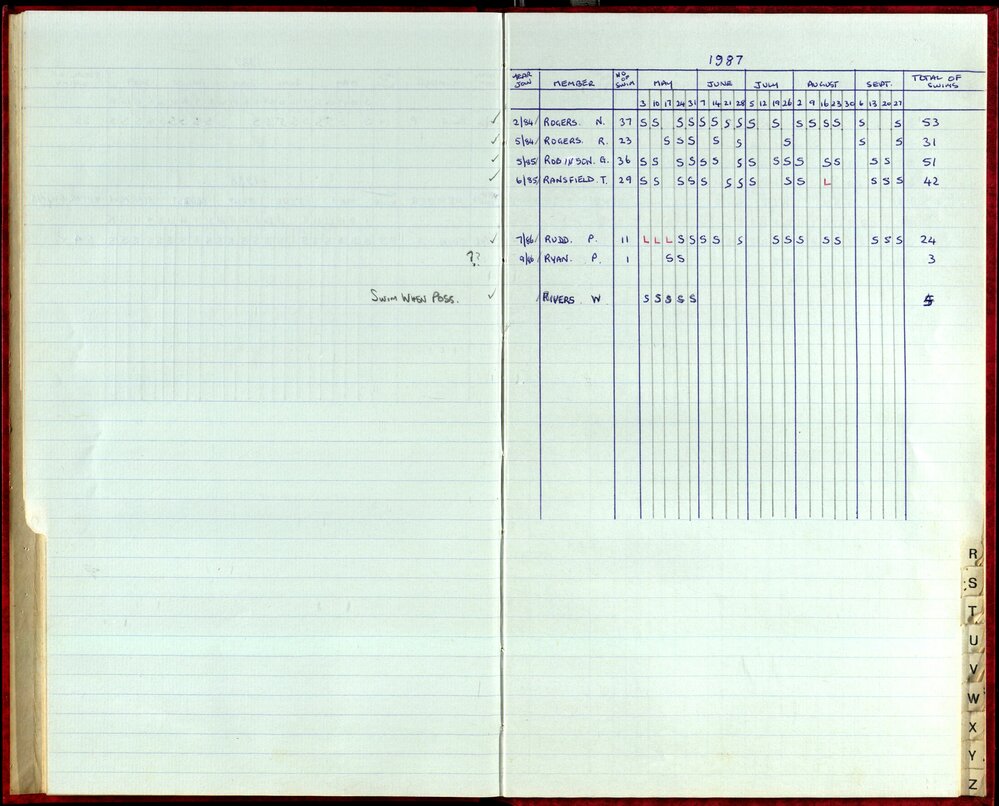 1987
YEAR JOIN MEMBER NO OF SWIM MAY JUNE JULY AUGUST SEPT. TOTAL OF SWIMS
3 10 17 24 31 7 14 21 28 5 12 19 26 2 9 16 23 30 6 13 20 27
✓ 2/84 ROGERS. N. 37 S S S S S S S S S S S S S S S S 53
✓ 5/84 ROGERS. R. 23 S S S S S S S S 31
✓ 5/85 ROBINSON. G. 36 S S S S S S S S S S S S S S S 51
✓ 6/85 RANSFIELD. T. 29 S S S S S S S S S S L S S S 42
✓ 7/86 RUDD. P. 11 L L L S S S S S S S S S S S S S 24
?? 9/86 RYAN. P. 1 S S 3
SWIM WHEN POSS. ✓ RIVERS. W S S S S S 5
R
S
T
U
V
W
X
Y
Z